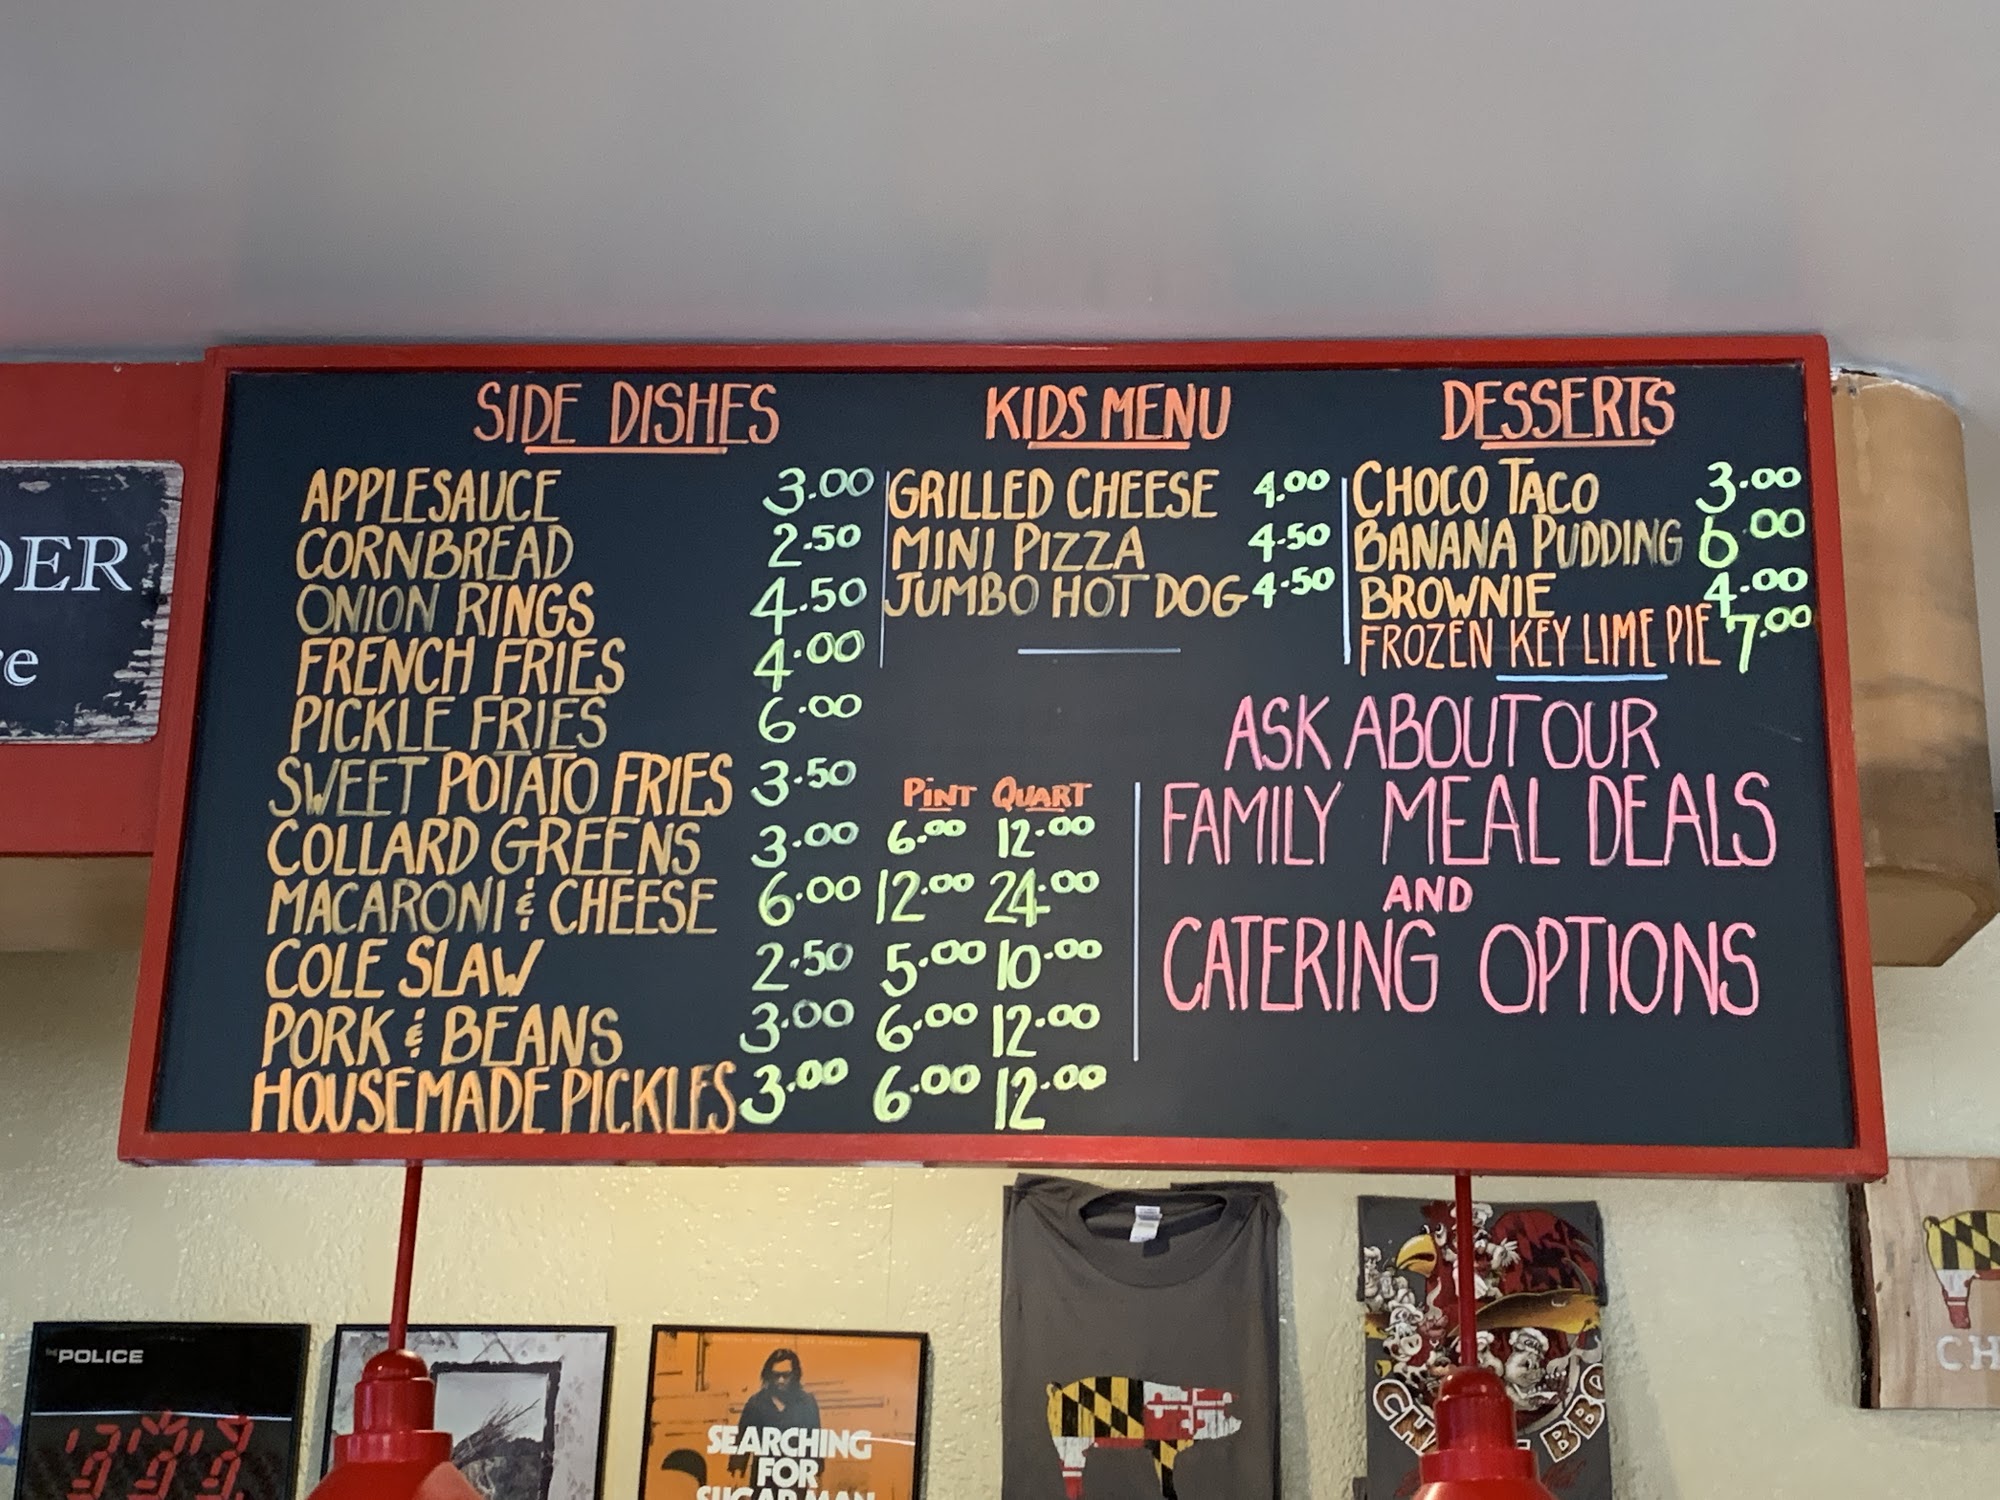 SIDE DISHES
APPLESAUCE 3.00
CORNBREAD 2.50
ONION RINGS 4.50
FRENCH FRIES 4.00
PICKLE FRIES 6.00
SWEET POTATO FRIES 3.50
PINT QUART
COLLARD GREENS 3.00 6.00 12.00
MACARONI & CHEESE 6.00 12.00 24.00
COLE SLAW 2.50 5.00 10.00
PORK & BEANS 3.00 6.00 12.00
HOUSEMADE PICKLES 3.00 6.00 12.00
KIDS MENU
GRILLED CHEESE 4.00
MINI PIZZA 4.50
JUMBO HOT DOG 4.50
DESSERTS
CHOCO TACO 3.00
BANANA PUDDING 6.00
BROWNIE 4.00
FROZEN KEY LIME PIE 7.00
ASK ABOUT OUR
FAMILY MEAL DEALS
AND
CATERING OPTIONS
DER
re
THE POLICE
SEARCHING
FOR
SUGAR MAN
BBQ
CH